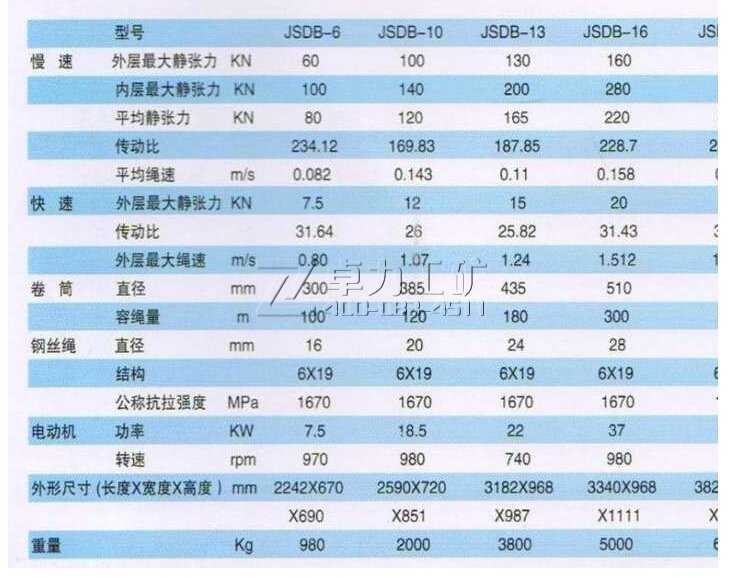 型号 JSDB-6 JSDB-10 JSDB-13 JSDB-16 JS
慢 速 外层最大静张力 KN 60 100 130 160
内层最大静张力 KN 100 140 200 280
平均静张力 KN 80 120 165 220
传动比 234.12 169.83 187.85 228.7 2
平均绳速 m/s 0.082 0.143 0.11 0.158
快 速 外层最大静张力 KN 7.5 12 15 20
传动比 31.64 26 25.82 31.43
外层最大绳速 m/s 0.80 1.07 1.24 1.512 1
卷 筒 直径 mm 300 385 435 510
容绳量 m 100 120 180 300
卓力工矿
钢丝绳 直径 mm 16 20 24 28
结构 6X19 6X19 6X19 6X19
公称抗拉强度 MPa 1670 1670 1670 1670
电动机 功率 KW 7.5 18.5 22 37
转速 rpm 970 980 740 980
外形尺寸(长度X宽度X高度) mm 2242X670 2590X720 3182X968 3340X968 382
X690 X851 X987 X1111 X
重量 Kg 980 2000 3800 5000